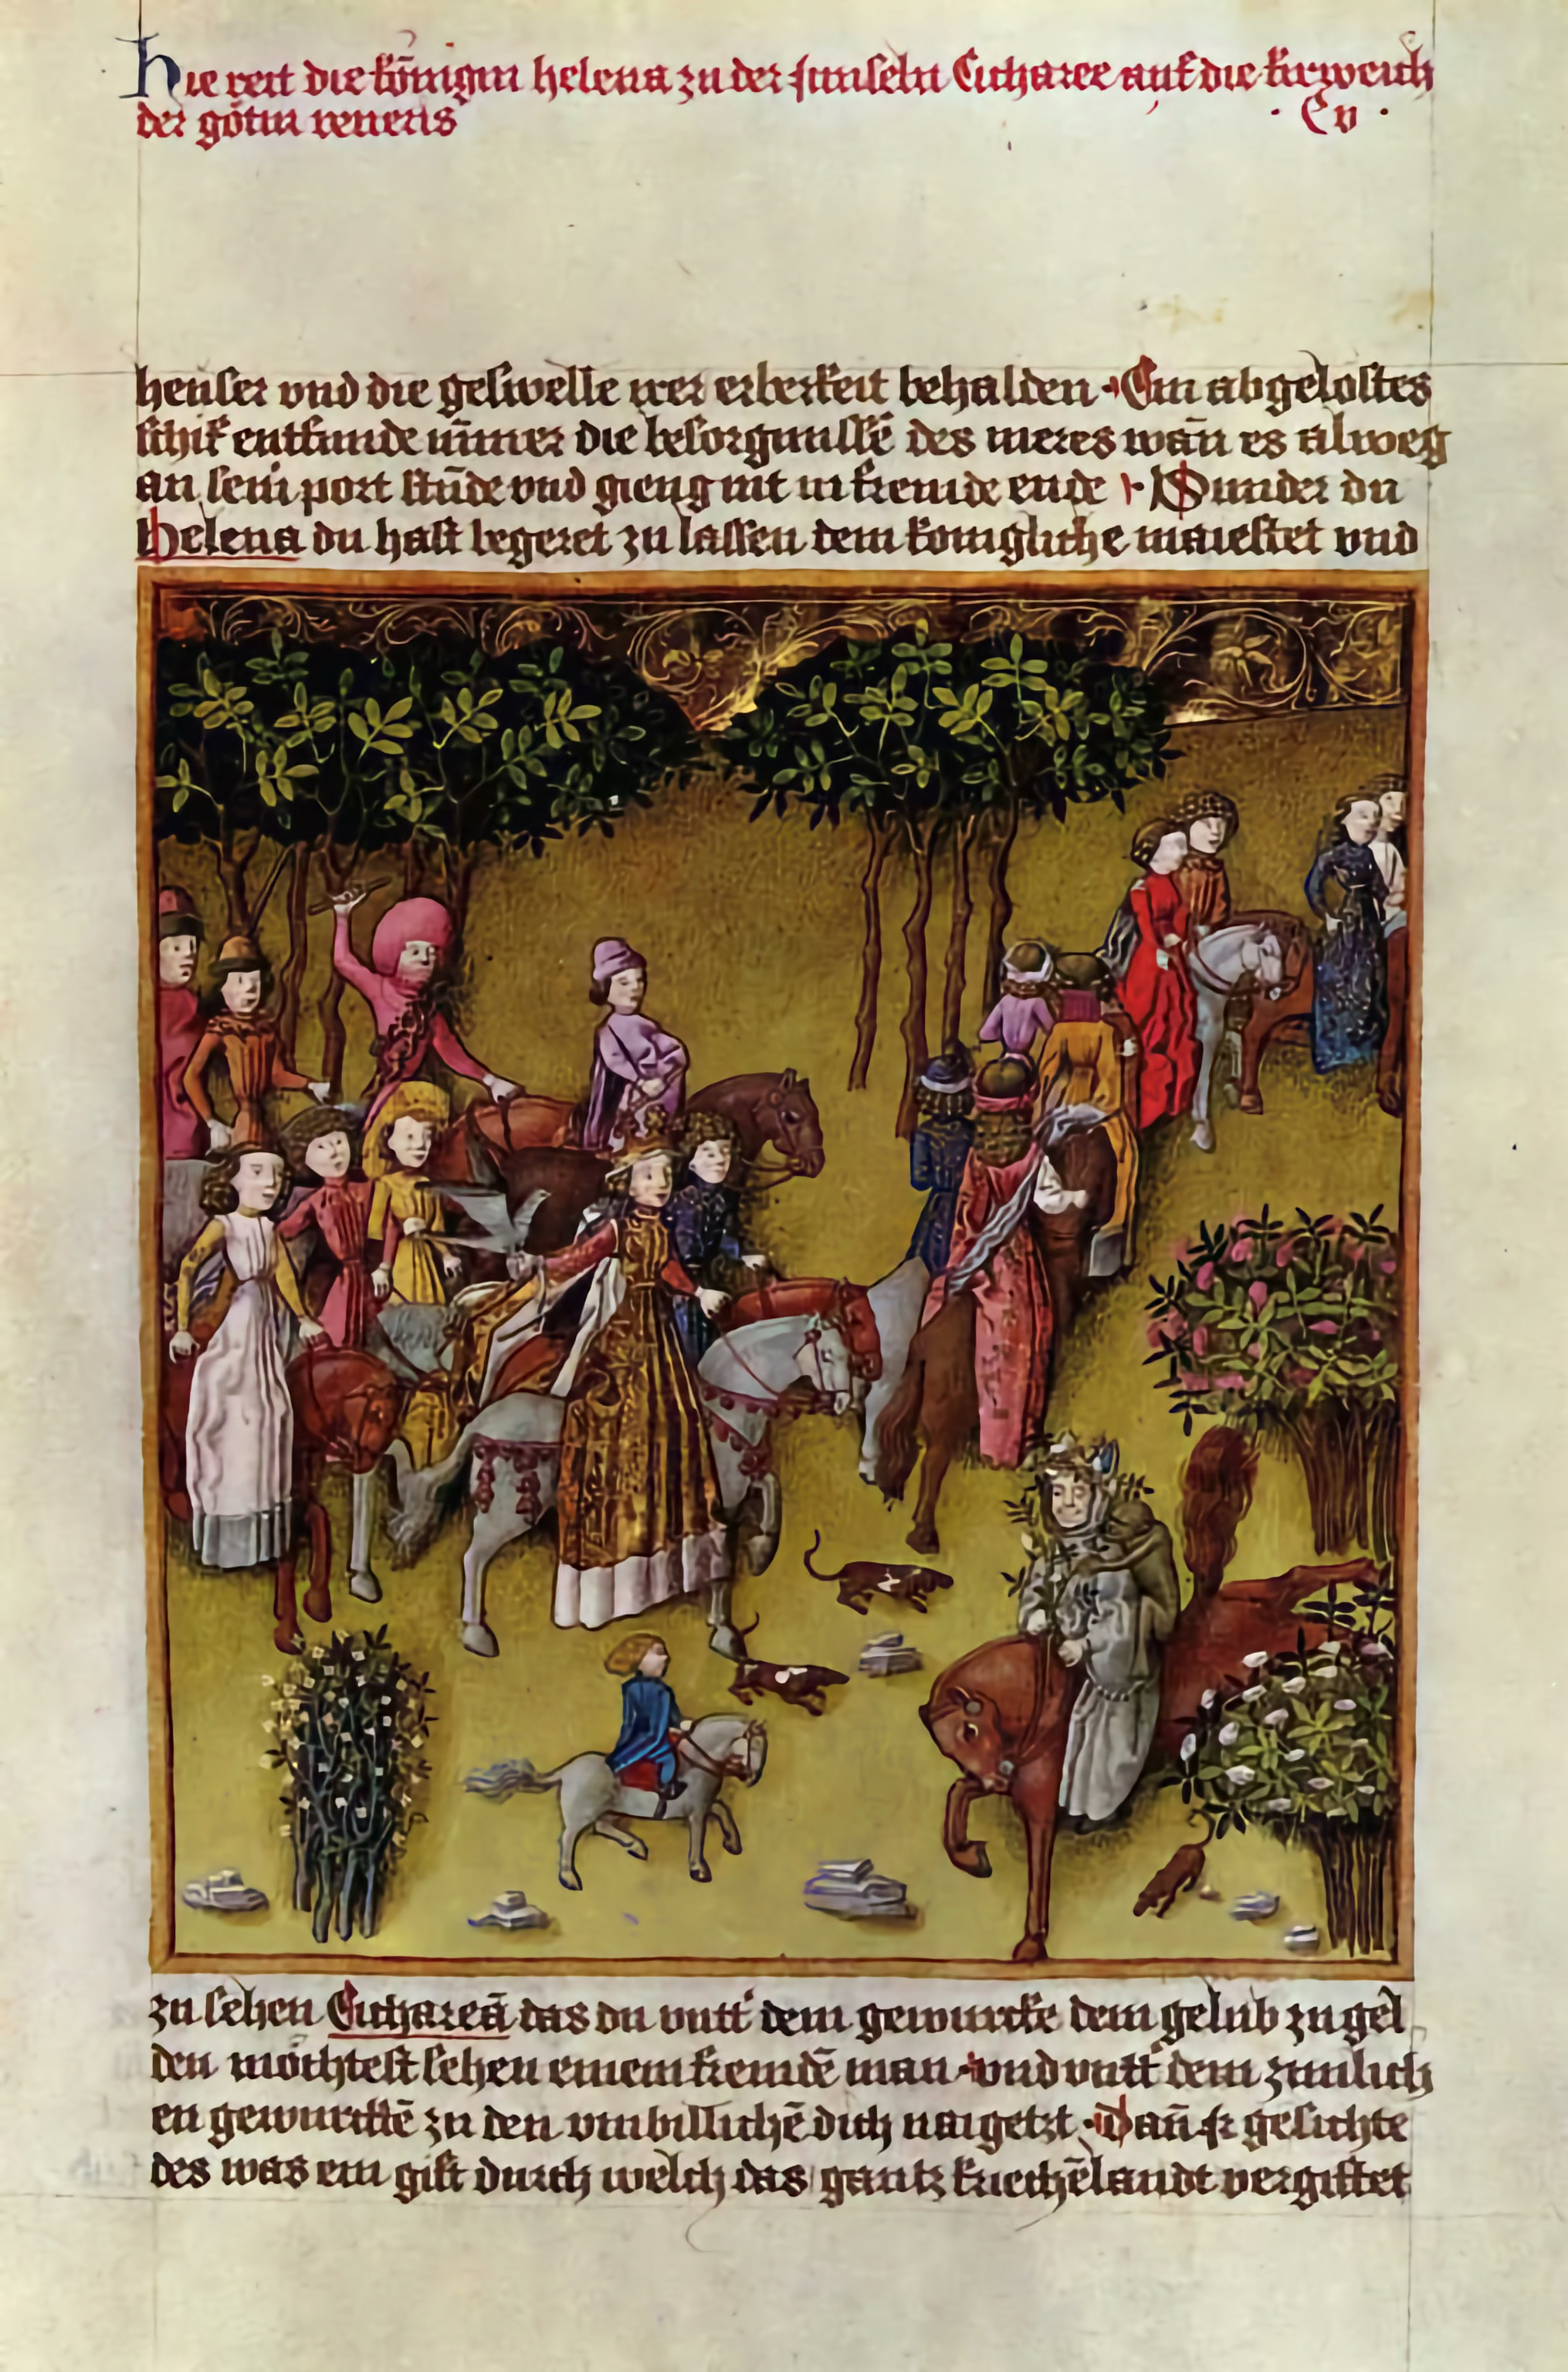 Hie reit die kőnigin helena zu der jnnseln Citharee auf die kirweich
der gőtin veneris
· Cv ·
heuser vnd die geswelle irer erberkeit behalden · Ein abgelostes
schif entfunde nῑmer die besorgnussē des meres wañ es alweg
an sein port stūde vnd gieng nit in fremde ende · Wunder du
Helena du hast begeret zu lassen dein konigliche maiestet vnd
zu sehen Cithareā das du vntt' dem gewurcke dein gelub zu gel
den mőchtest sehen einem fremdē man · vnd vntt' dem zimlich
en gewurckē zu den vnbillichē dich naigetst · Dañ gesichte
des was ein gift durch welch das gantz kriechēlandt vergiftet